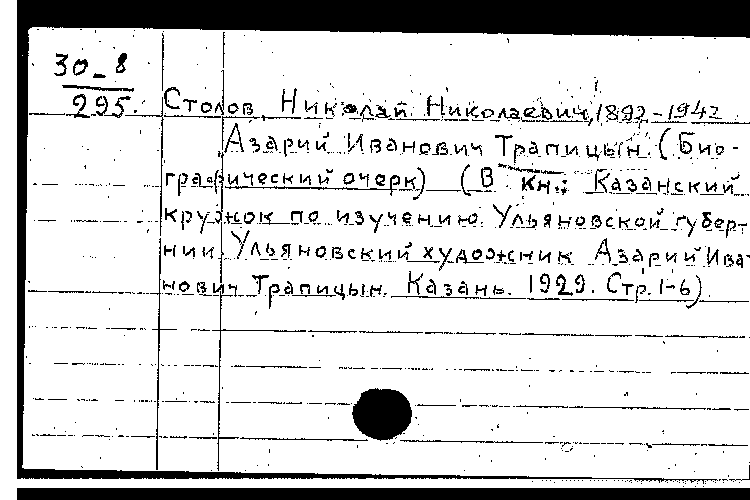 30-8
295.
Столов, Николай Николаевич, 1892-1942
Азарий Иванович Трапицын. (Био-
графический очерк) (В кн.: Казанский
кружок по изучению Ульяновской губер-
нии. Ульяновский художник Азарий Ива-
нович Трапицын. Казань. 1929. Стр. 1-6)